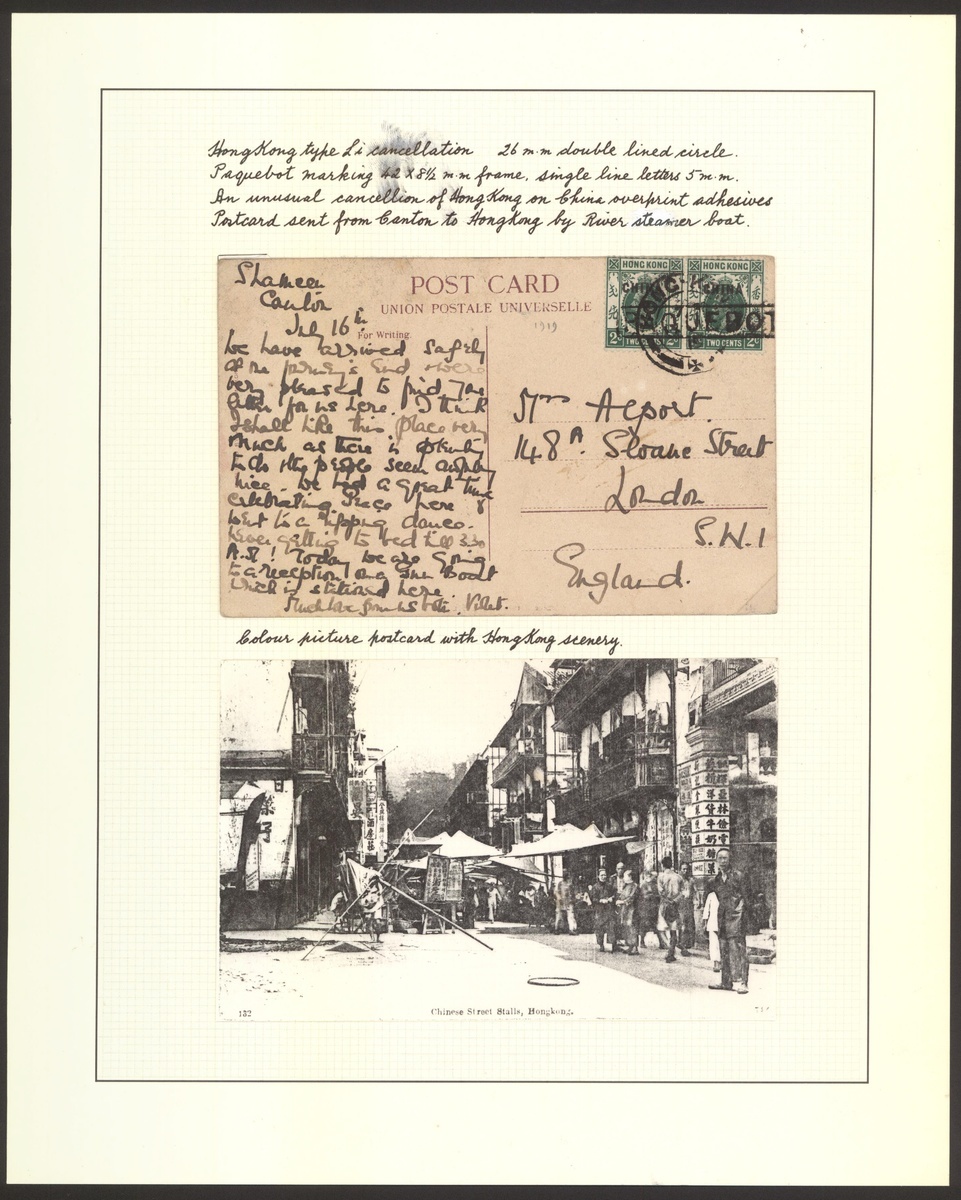 HongKong type Li cancellation 26 m·m double lined circle.
Paquebot marking 42 x 8½ m·m frame, single line letters 5 m·m.
An unusual cancellion of HongKong on China overprint adhesives
Postcard sent from Canton to HongKong by River steamer boat.
POST CARD
UNION POSTALE UNIVERSELLE
1919
For Writing.
HONG KONG HONG KONG
CHINA CHINA
TWO CENTS TWO CENTS
Shameen
Canton
July 16th
We have arrived safely
at the journey's end & were
very pleased to find your
letter for us here. I think
I shall like this place very
much as there is plenty
to do & the people seem awfully
nice. We had a great time
celebrating Peace here &
went to a ripping dance.
Never getting to bed till 3.30
A.M! Today we are going
to a reception on a Gun Boat
which is stationed here.
Much love from us both. Violet.
Mrs Alport.
148A. Sloane Street
London
S.W.1
England.
Colour picture postcard with HongKong scenery.
132 Chinese Street Stalls, Hongkong.